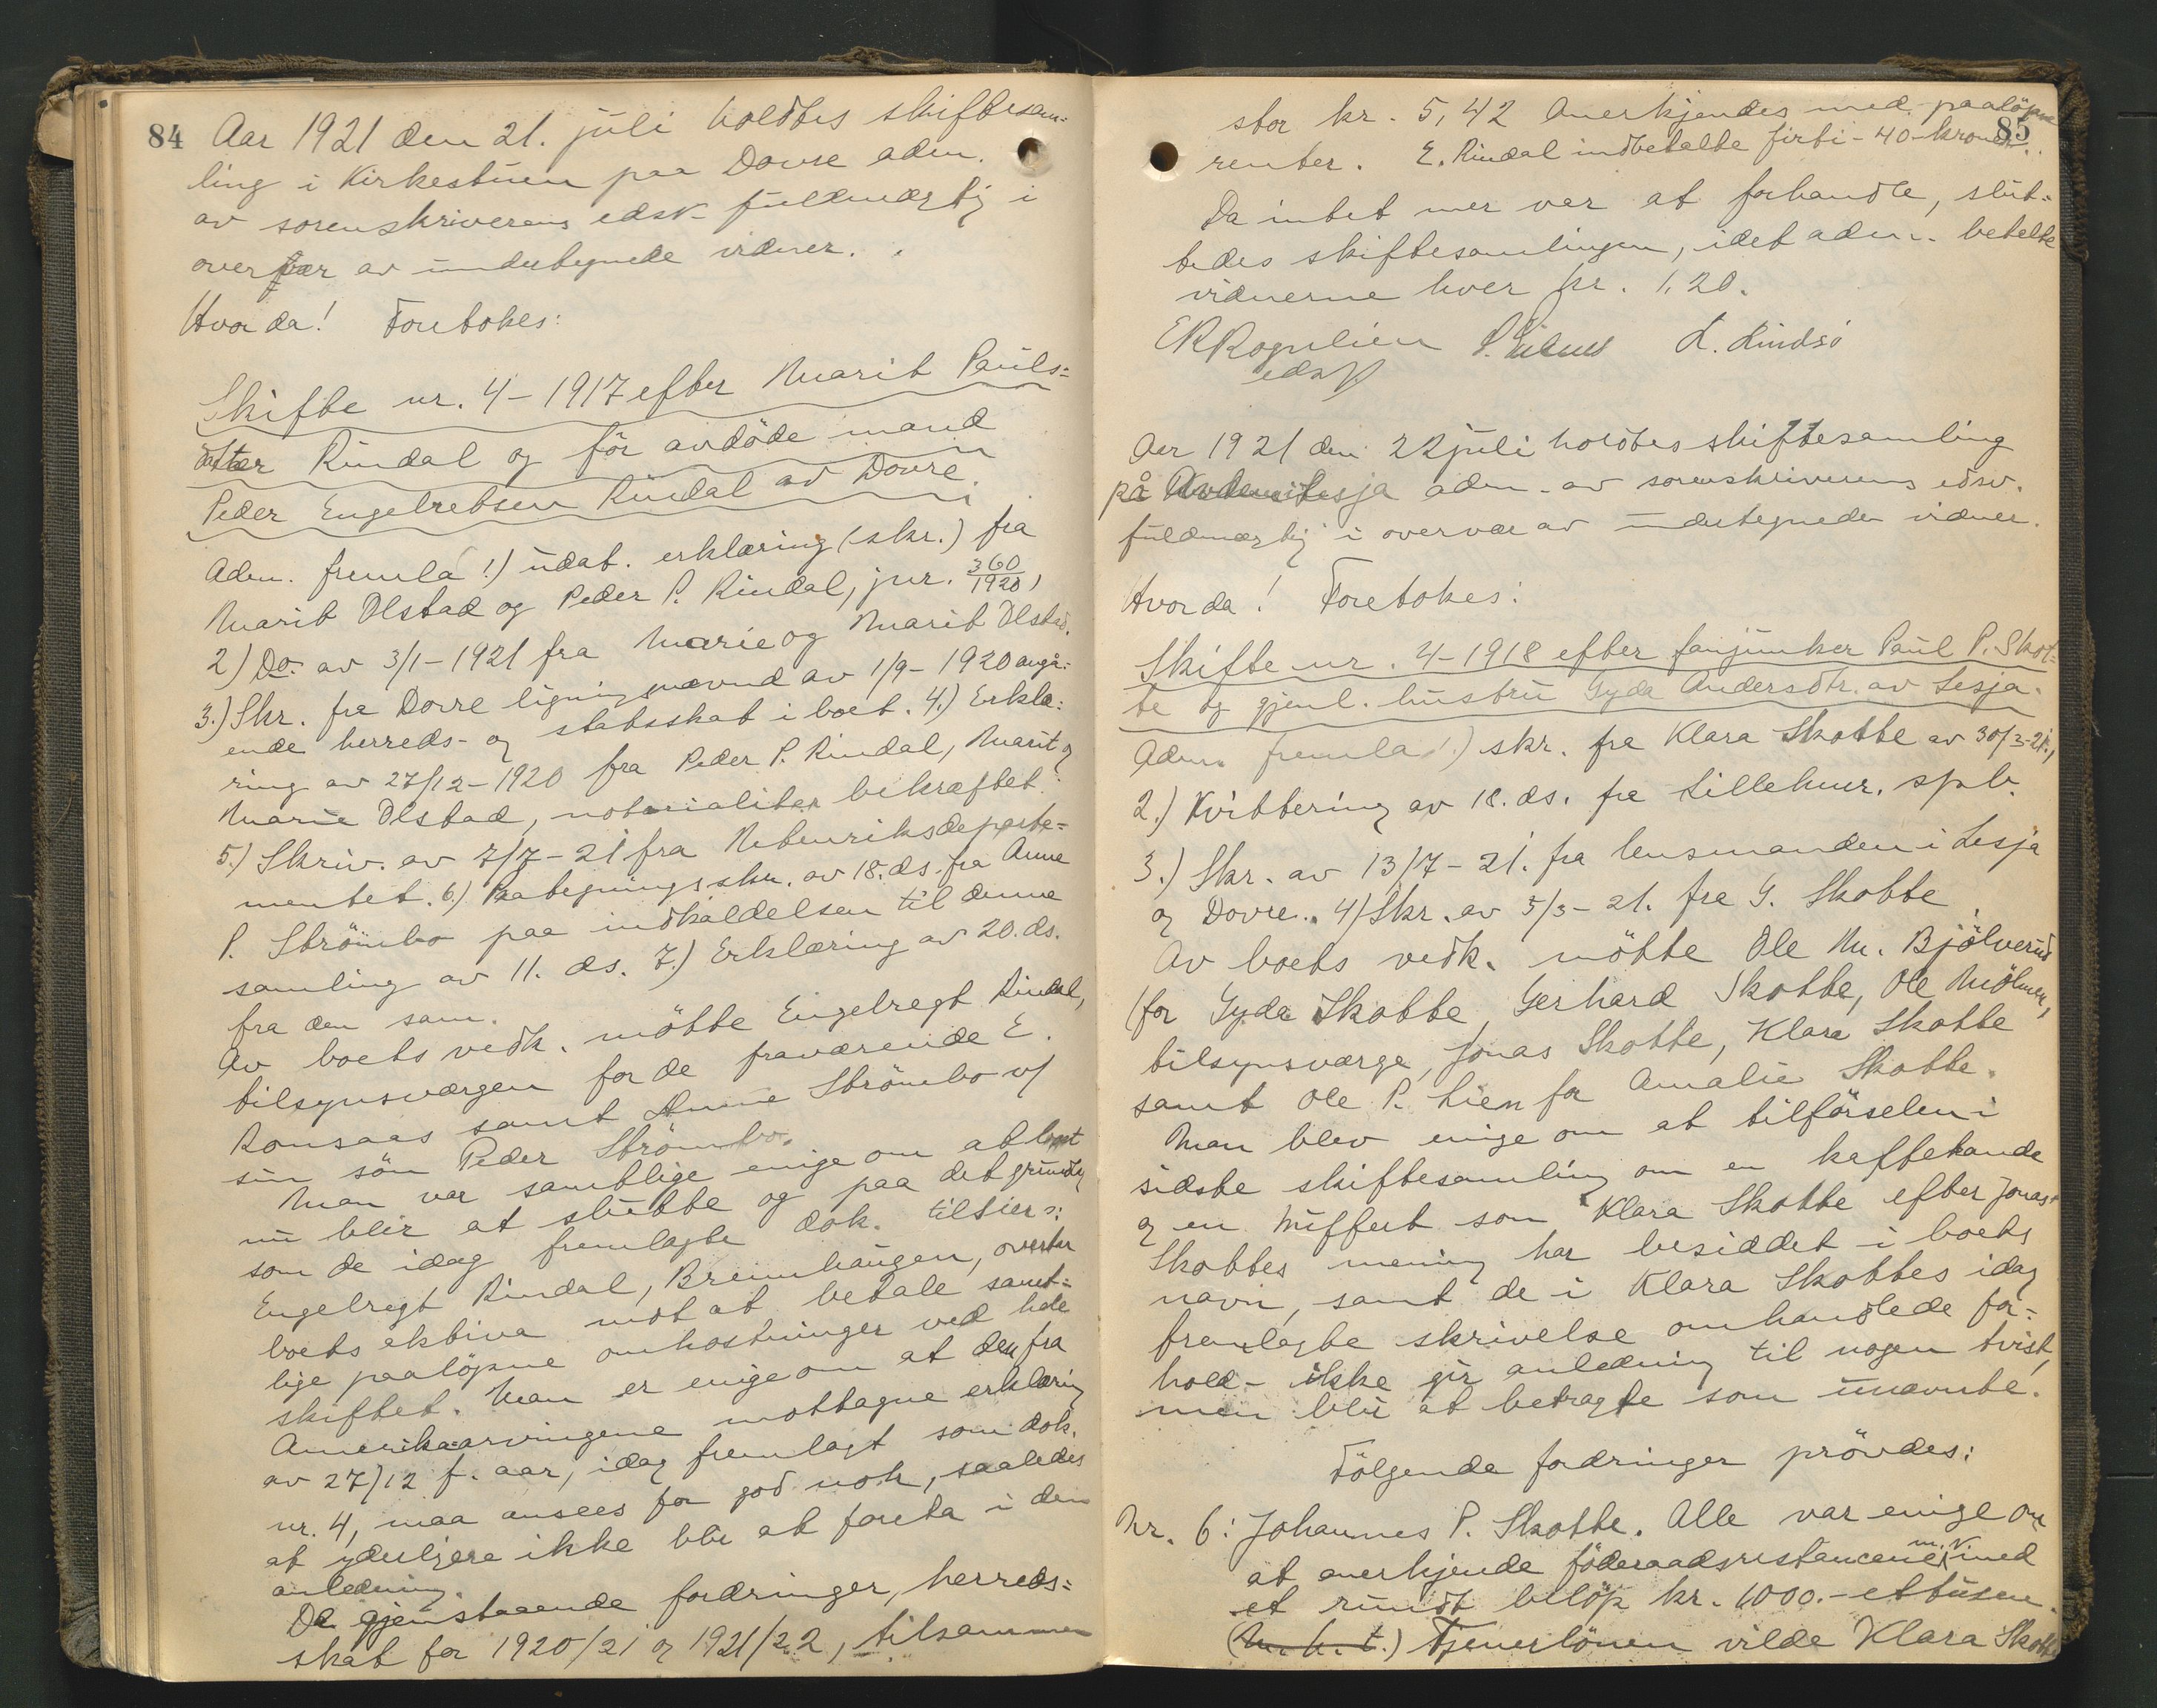 84
Aar 1921 den 21. juli holdtes skiftesam=
ling i Kirkestuen paa Dovre adm.
av sorenskriverens edsv. fuldmægtig i
overvær av undertegnede vidner.
Hvorda! Foretokes:
Skifte nr. 4 - 1917 efter Marit Pauls=
datter Rindal og før avdöde mand
Peder Engelretsen Rindal av Dovre.
Adm. fremla 1) udat. erklæring (skr.) fra
Marit Olstad og Peder P. Rindal, jnr. 360/1920,
2) Do. av 3/1-1921 fra Marie og Marit Olstad.
3.) Skr. fra Dovre ligningsnævnd av 1/9-1920 angå=
ende herreds- og statsskat i boet. 4.) Erklæ=
ring av 27/12-1920 fra Peder P. Rindal, Marit og
Marie Olstad, notarialiter bekræftet.
5.) Skriv. av 7/7-21 fra Utenriksdeparte=
mentet. 6.) Paategningsskr. av 18. ds. fra Anne
P. Strömbo paa indkaldelsen til denne
samling av 11. ds. 7.) Erklæring av 20. ds.
fra den sam.
Av boets vedk. mötte Engelregt Rindal,
tilsynsværgen for de fraværende E.
Romsaas samt Anne Strömbo v/
sin sön Peder Strömbo.
Man var samtlige enige om at boet
nu blir at slutte og paa det grundlag
som de idag fremlagte dok. tilsier:
Engelregt Rindal, Brennhaugen, overtar
boets aktiva mot at betale samt=
lige paalöpne omkostninger ved hele
skiftet. Man er enige om at den fra
Amerikaarvingene mottagne erklæring
av 27/12 f. aar, idag fremlagt som dok.
nr. 4, maa ansees for god nok, saaledes
at yderligere ikke blir at foreta i den
anledning.
De gjenstaaende fordringer, herreds=
skat for 1920/21 og 1921/22, tilsammen
85
stor kr. 5,42 anerkjendes med paalöpne
renter. E. Rindal indbetalte firti - 40 - kroner.
Da intet mer var at forhandle, slut=
tedes skiftesamlingen, idet adm. betalte
vidnerne hver kr. 1,20.
E R Rognlien L. Lindsö
edsv
Aar 1921 den 22 juli holdtes skiftesamling
på Lesja adm. av sorenskriverens edsv.
fuldmægtig i overvær av undertegnede vidner.
Hvorda! Foretokes:
Skifte nr. 4-1918 efter fanejunker Paul P. Skot=
te og gjenl. hustru Gyda Andersdtr. av Lesja.
Adm. fremla 1.) skr. fra Klara Skotte av 30/3-21.,
2.) Kvittering av 18. ds. fra Lillehmr. spb.
3.) Skr. av 13/7-21. fra lensmanden i Lesja
og Dovre. 4) Skr. av 5/3-21. fra G. Skotte.
Av boets vedk. mötte Ole M. Bjölverud
(for Gyda Skotte, Gerhard Skotte, Ole Mölmen,
tilsynsværge, Jonas Skotte, Klara Skotte
samt Ole P. Lien for Amalie Skotte.
Man blev enige om at tilförselen i
sidste skiftesamling om en kaffekande
og en muffert som Klara Skotte efter Jonas
Skottes mening har besiddet i boets
navn, samt de i Klara Skottes idag
fremlagte skrivelse omhandlede for=
hold - ikke gir anledning til nogen tvist,
men blir at betragte som unævnte.
Fölgende fordringer prövdes:
Nr. 6: Johannes P. Skotte. Alle var enige om
at anerkjende föderaadsrestancene m.v. med
et rundt belöp kr. 1000.- ettusen.
(m. h. t.) Tjenerlönen vilde Klara Skotte